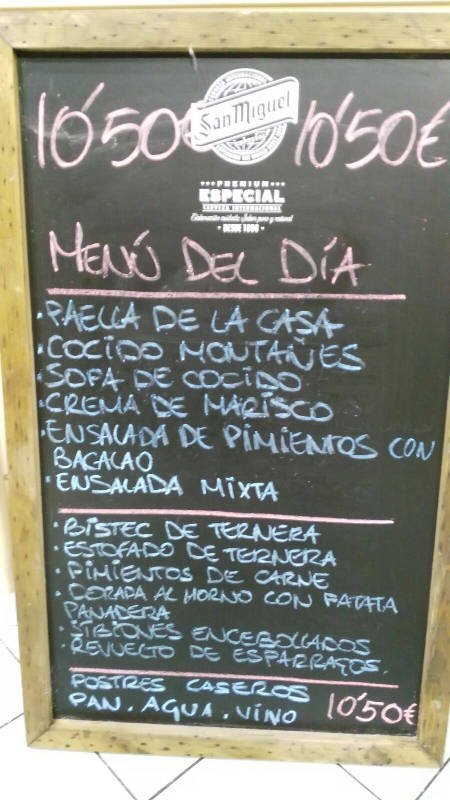 10'50€ San Miguel 10'50€
PREMIUM
ESPECIAL
CERVEZA INTERNACIONAL
DESDE 1890
MENÚ DEL DÍA
·PAELLA DE LA CASA
·COCIDO MONTAÑES
·SOPA DE COCIDO
·CREMA DE MARISCO
·ENSALADA DE PIMIENTOS CON
BACALAO
·ENSALADA MIXTA
·BISTEC DE TERNERA
·ESTOFADO DE TERNERA
·PIMIENTOS DE CARNE
·DORADA AL HORNO CON PATATA
PANADERA
·JIBIONES ENCEBOLLADOS
·REVUELTO DE ESPARRAGOS.
POSTRES CASEROS
PAN. AGUA. VINO 10'50€